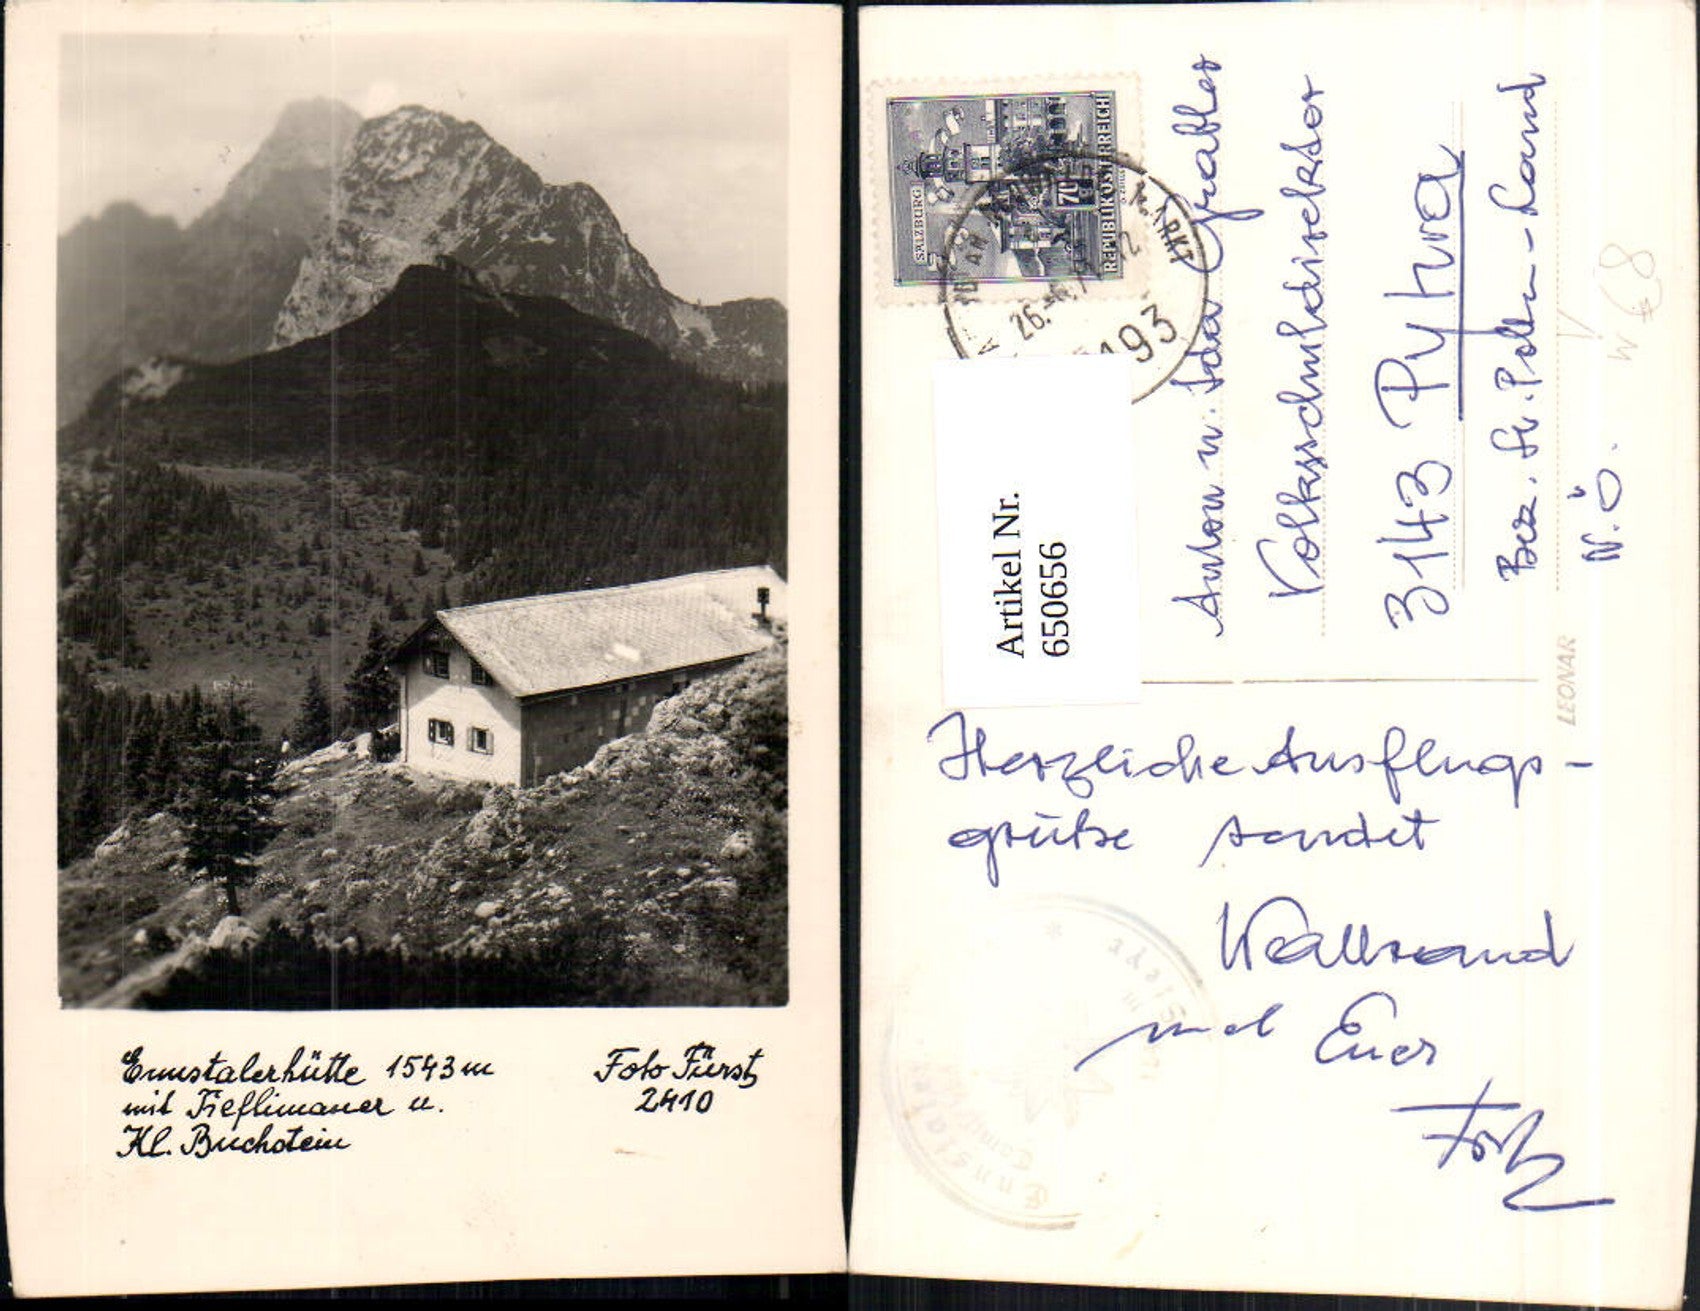 Ennstalerhütte 1543 m
mit Tieflimauer u.
Kl. Buchstein
Foto Fürst
2410
SALZBURG
70
REPUBLIK ÖSTERREICH
26.
193
Artikel Nr.
6506656
Anton u. Ida Grabler
Volksschuldirektor
3143 Pyhra
Bez. St. Pölten-Land
N.Ö.
W 68
LEONAR
Herzliche Ausflugs-
grüße sendet
Waltraud
und Euer
Fritz